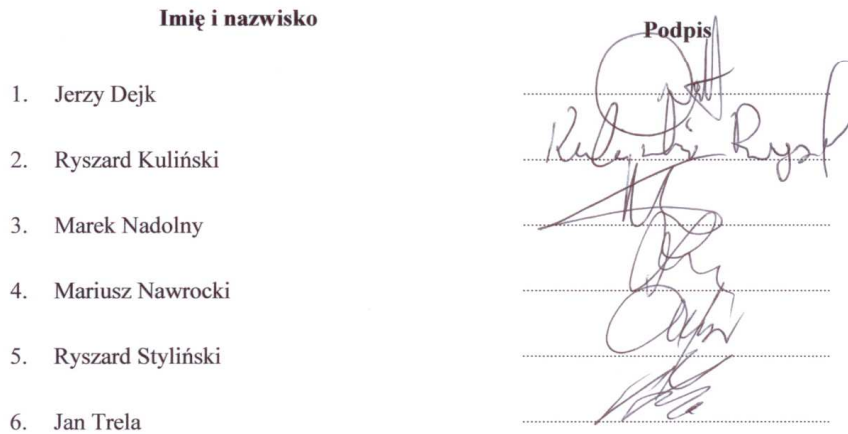 Imię i nazwisko Podpis
1. Jerzy Dejk
2. Ryszard Kuliński Kuliński Rysz
3. Marek Nadolny
4. Mariusz Nawrocki
5. Ryszard Styliński
6. Jan Trela